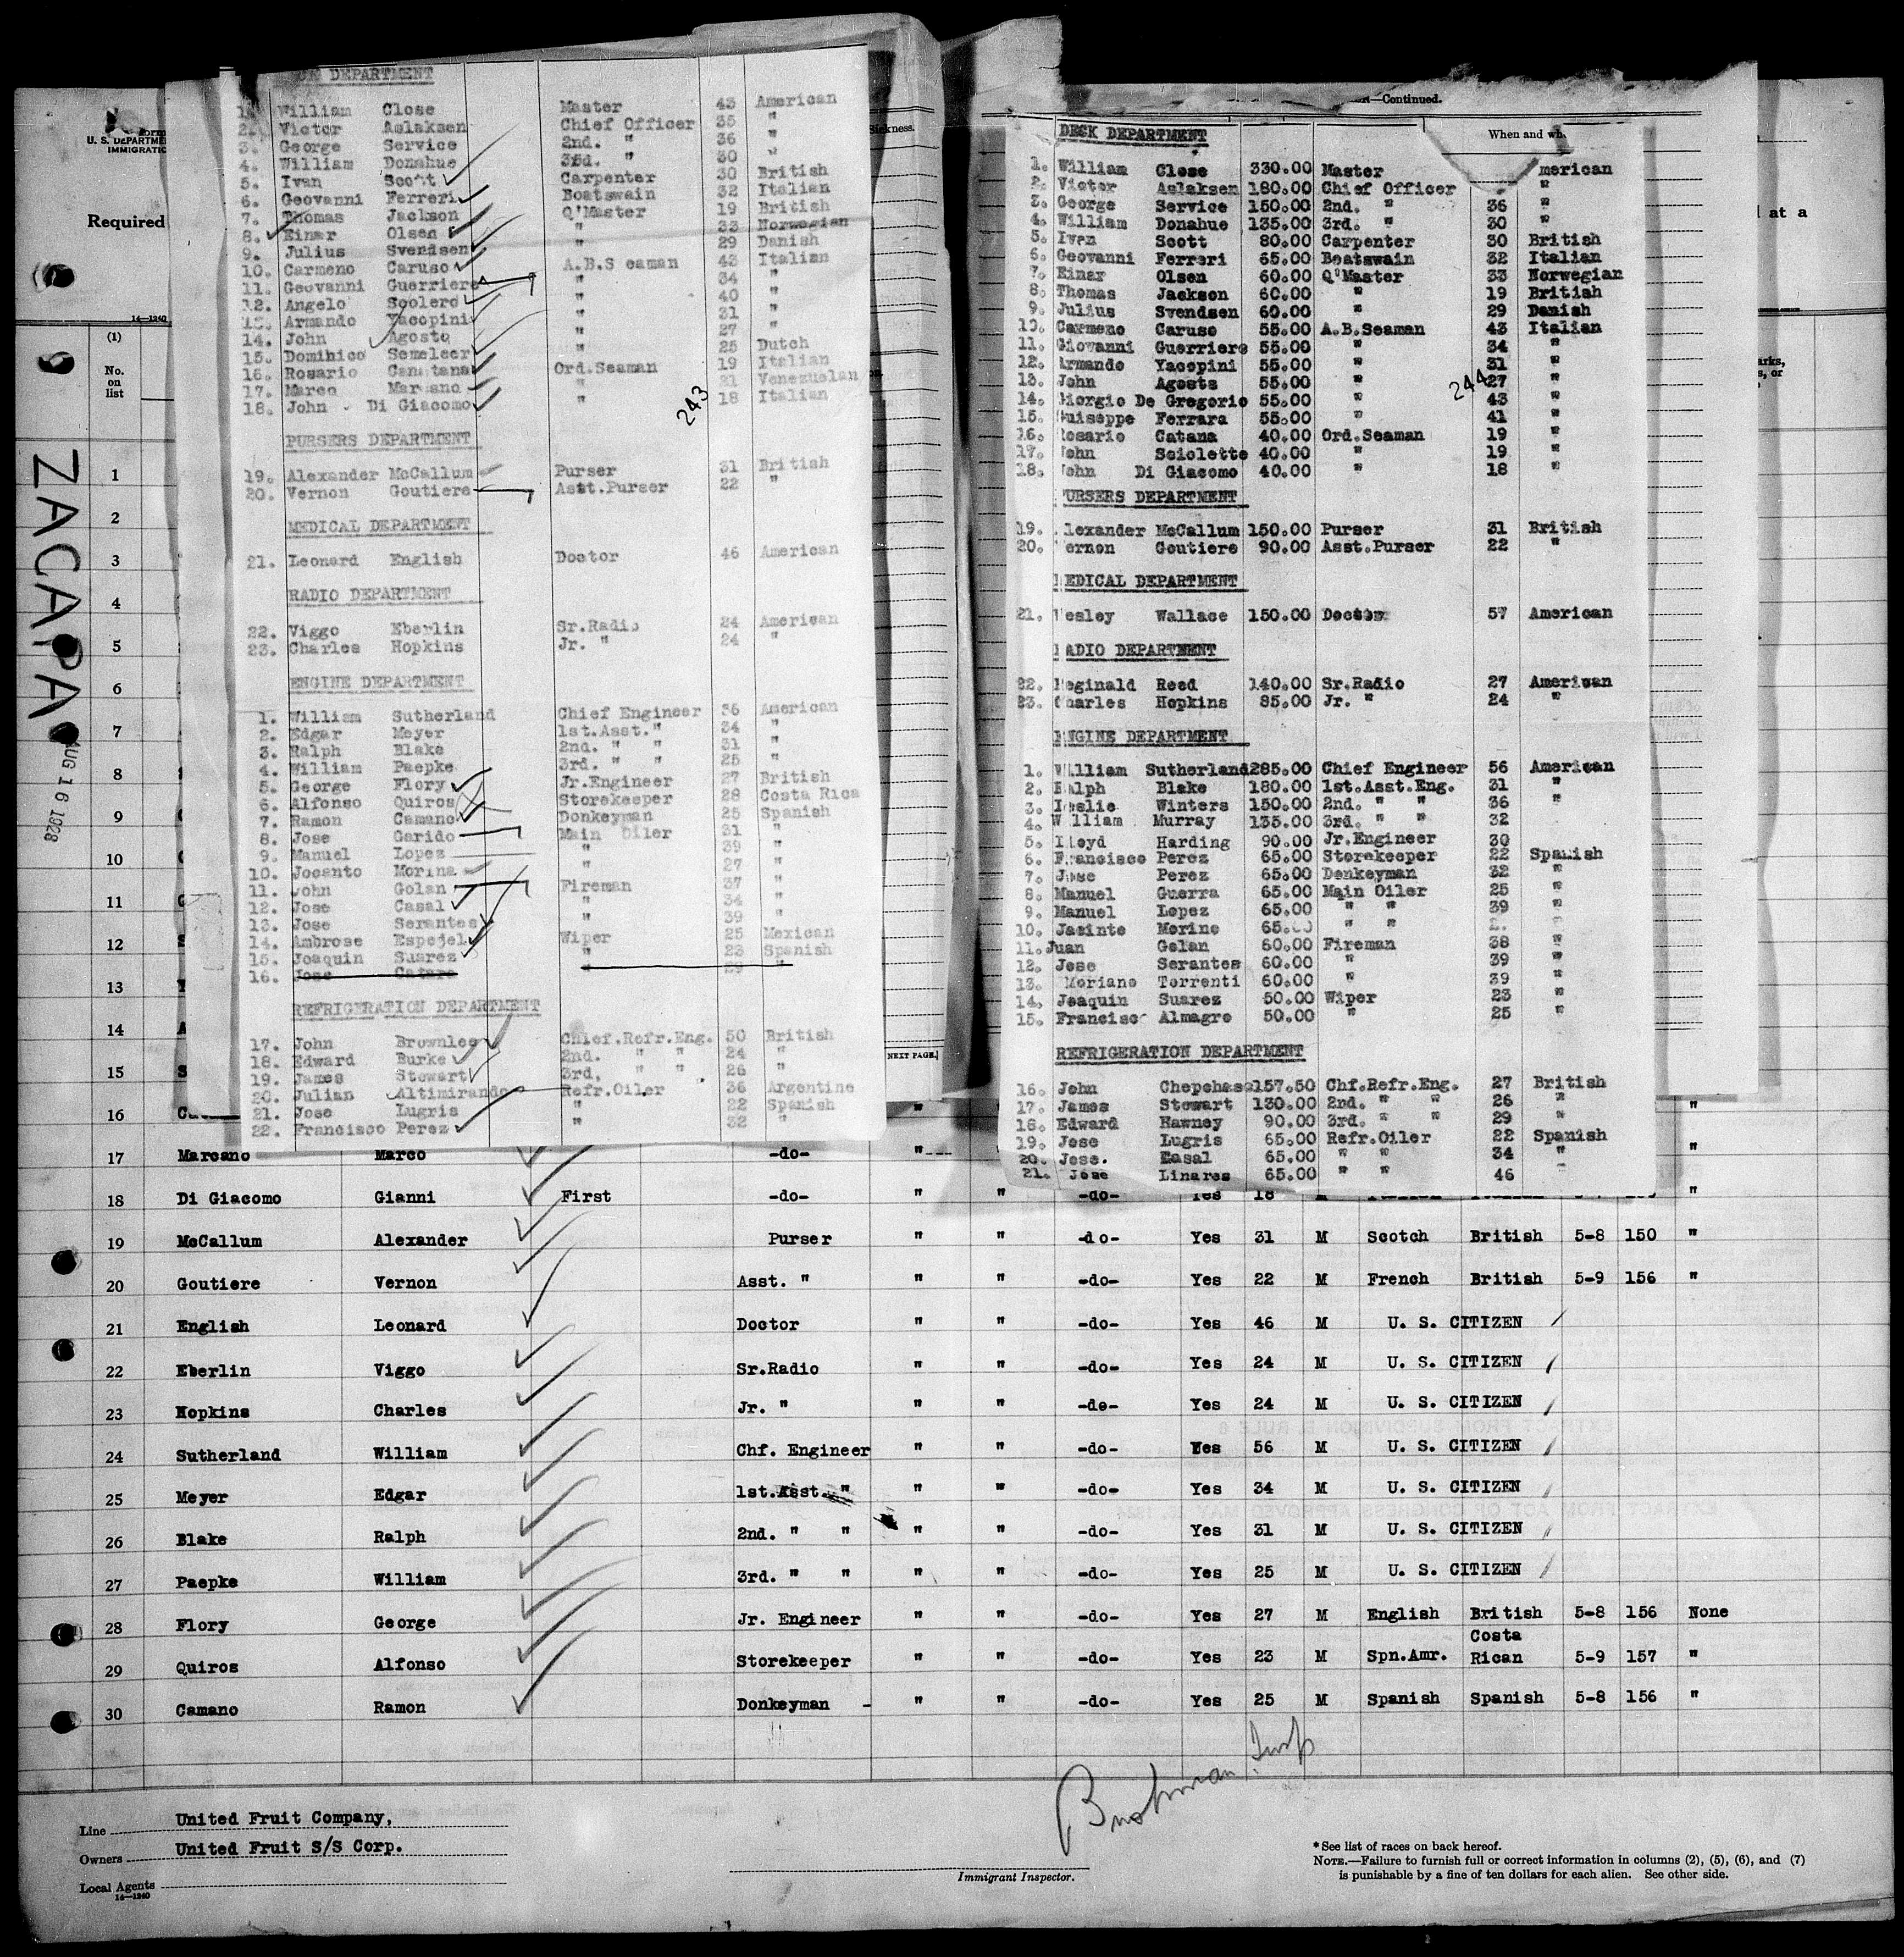 Form
U. S. DEPARTME
IMMIGRATIO
Required
14—1240
(1)
No.
on
list
ZACAPA
AUG 16 1928
DEPARTMENT
1. William Close Master 43 American
2. Victor Aslaksen Chief Officer 35 "
3. George Service 2nd. " 36 "
4. William Donahue 3rd. " 30 "
5. Ivan Scott Carpenter 30 British
6. Geovanni Ferreri Boatswain 32 Italian
7. Thomas Jackson Q'Master 19 British
8. Einar Olsen " 33 Norwegian
9. Julius Svendsen " 29 Danish
10. Carmeno Caruso A.B.S eaman 43 Italian
11. Geovanni Guerriere " 34 "
12. Angelo Scolero " 40 "
13. Armando Yacopini " 31 "
14. John Agosto " 27 "
15. Dominico Semeleer " 25 Dutch
16. Rosario Canatana Ord.Seaman 19 Italian
17. Marco Marcano " 21 Venezuelan
18. John Di Giacomo " 18 Italian
243
PURSERS DEPARTMENT
19. Alexander McCallum Purser 31 British
20. Vernon Goutiere Asst.Purser 22 "
MEDICAL DEPARTMENT
21. Leonard English Doctor 46 American
RADIO DEPARTMENT
22. Viggo Eberlin Sr.Radio 24 American
23. Charles Hopkins Jr. " 24 "
ENGINE DEPARTMENT
1. William Sutherland Chief Engineer 56 American
2. Edgar Meyer 1st.Asst." 34 "
3. Ralph Blake 2nd. " " 31 "
4. William Paepke 3rd. " " 25 "
5. George Flory Jr.Engineer 27 British
6. Alfonso Quiros Storekeeper 28 Costa Rica
7. Ramon Camano Donkeyman 25 Spanish
8. Jose Garido Main Oiler 31 "
9. Manuel Lopez " 39 "
10. Jocanto Morina " 27 "
11. John Golan Fireman 37 "
12. Jose Casal " 34 "
13. Jose Serantes " 39 "
14. Ambrose Espejel Wiper 25 Mexican
15. Joaquin Suarez " 23 Spanish
16. Jose Cataro " 29 "
REFRIGERATION DEPARTMENT
17. John Brownlee Chief.Refr.Eng. 50 British
18. Edward Burke 2nd. " " 24 "
19. James Stewart 3rd, " " 26 "
20. Julian Altimirando Refr.Oiler 36 Argentine
21. Jose Lugris " 22 Spanish
22. Francisco Perez " 32 "
Sickness.
NEXT PAGE.]
—Continued.
When and wh
at a
DECK DEPARTMENT
1. William Close 330.00 Master merican
2. Victor Aslaksen 180.00 Chief Officer "
3. George Service 150.00 2nd. " 36 "
4. William Donahue 135.00 3rd. " 30 "
5. Ivan Scott 80.00 Carpenter 30 British
6. Geovanni Ferrari 65.00 Boatswain 32 Italian
7. Einar Olsen 60.00 Q'Master 33 Norwegian
8. Thomas Jackson 60.00 " 19 British
9. Julius Svendsen 60.00 " 29 Danish
10. Carmeno Caruso 55.00 A.B.Seaman 43 Italian
11. Giovanni Guerriere 55.00 " 34 "
12. Armando Yacopini 55.00 " 31 "
13. John Agosta 55.00 " 27 "
14. Giorgio De Gregorio 55.00 " 43 "
15. Guiseppe Ferrara 55.00 " 41 "
16. Rosario Catana 40.00 Ord.Seaman 19 "
17. John Sciolette 40.00 " 19 "
18. John Di Giacomo 40.00 " 18 "
244
PURSERS DEPARTMENT
19. lexander McCallum 150.00 Purser 31 British
20. ernon Goutiere 90.00 Asst.Purser 22 "
MEDICAL DEPARTMENT
21. Wesley Wallace 150.00 Doctor 57 American
RADIO DEPARTMENT
22. Reginald Reed 140.00 Sr.Radio 27 American
23. Charles Hopkins 85.00 Jr. " 24 "
ENGINE DEPARTMENT
1. William Sutherland 285.00 Chief Engineer 56 American
2. Ralph Blake 180.00 1st.Asst.Eng. 31 "
3. Leslie Winters 150.00 2nd. " " 36 "
4. William Murray 135.00 3rd. " " 32
5. Lloyd Harding 90.00 Jr.Engineer 30
6. Francisco Perez 65.00 Storekeeper 22 Spanish
7. Jose Perez 65.00 Donkeyman 32 "
8. Manuel Guerra 65.00 Main Oiler 25 "
9. Manuel Lopez 65.00 " " 39 "
10. Jacinto Morino 65.00 " " 2 "
11. Juan Golan 60.00 Fireman 38 "
12. Jose Serantes 60.00 " 39 "
13. Moriano Torrenti 60.00 " 39 "
14. Joaquin Suarez 50.00 Wiper 23 "
15. Francisc Almagro 50.00 " 25 "
REFRIGERATION DEPARTMENT
16. John Chepchase 157.50 Chf.Refr.Eng. 27 British
17. James Stewart 130.00 2nd. " " 26 "
18. Edward Hawney 90.00 3rd. " " 29 "
19. Jose Lugris 65.00 Refr.Oiler 22 Spanish
20. Jose. Casal 65.00 " " 34 "
21. Jose Linares 65.00 " " 46 "
1
2
3
4
5
6
7
8
9
10
11
12
13
14
15
16 "
17 Marcano Marco -do- " "
18 Di Giacomo Gianni First -do- " " -do- Yes 18 "
19 McCallum Alexander Purser " " -do- Yes 31 M Scotch British 5-8 150 "
20 Goutiere Vernon Asst. " " " -do- Yes 22 M French British 5-9 156 "
21 English Leonard Doctor " " -do- Yes 46 M U. S. CITIZEN
22 Eberlin Viggo Sr.Radio " " -do- Yes 24 M U. S. CITIZEN
23 Hopkins Charles Jr. " " " -do- Yes 24 M U. S. CITIZEN
24 Sutherland William Chf. Engineer " " -do- Yes 56 M U. S. CITIZEN
25 Meyer Edgar 1st.Asst. " " " -do- Yes 34 M U. S. CITIZEN
26 Blake Ralph 2nd. " " " " -do- Yes 31 M U. S. CITIZEN
27 Paepke William 3rd. " " " " -do- Yes 25 M U. S. CITIZEN
28 Flory George Jr. Engineer " " -do- Yes 27 M English British 5-8 156 None
29 Quiros Alfonso Storekeeper " " -do- Yes 23 M Spn.Amr. Costa Rican 5-9 157 "
30 Camano Ramon Donkeyman - " " -do- Yes 25 M Spanish Spanish 5-8 156 "
Line United Fruit Company,
Owners United Fruit S/S Corp.
Local Agents
14—1240
Immigrant Inspector.
*See list of races on back hereof.
NOTE.—Failure to furnish full or correct information in columns (2), (5), (6), and (7)
is punishable by a fine of ten dollars for each alien. See other side.